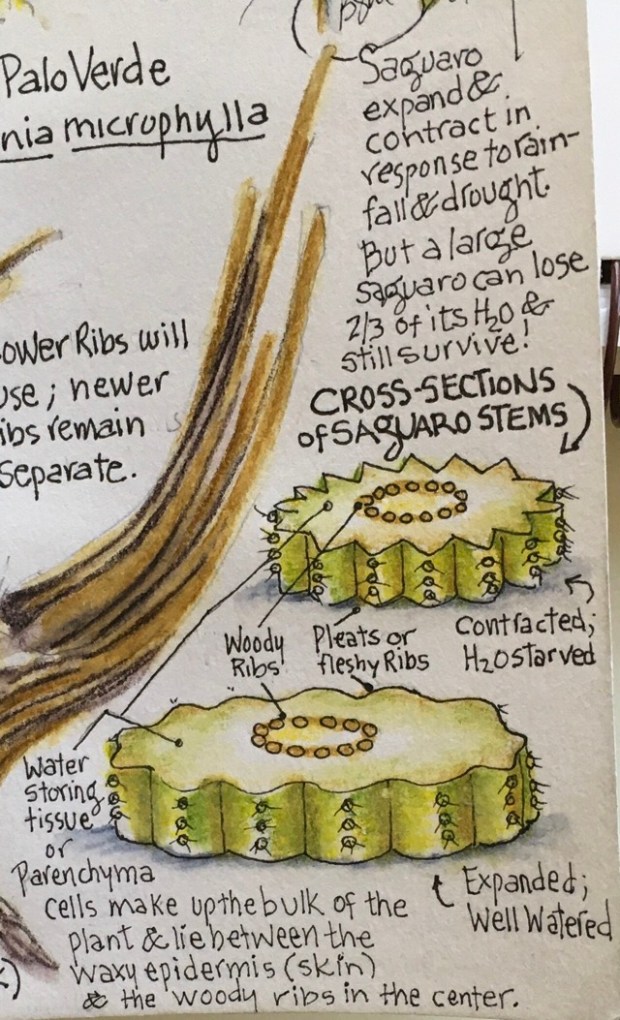 Palo Verde
nia microphylla
Saguaro
expand &
contract in
response to rain-
fall & drought.
But a large
saguaro can lose
2/3 of its H2O &
still survive!
ower Ribs will
use; newer
ibs remain
separate.
CROSS-SECTIONS
of SAGUARO STEMS
Contracted;
H2O starved
Woody
Ribs
Pleats or
fleshy Ribs
Water
storing
tissue
or
Parenchyma
cells make up the bulk of the
plant & lie between the
waxy epidermis (skin)
& the woody ribs in the center.
Expanded;
Well Watered